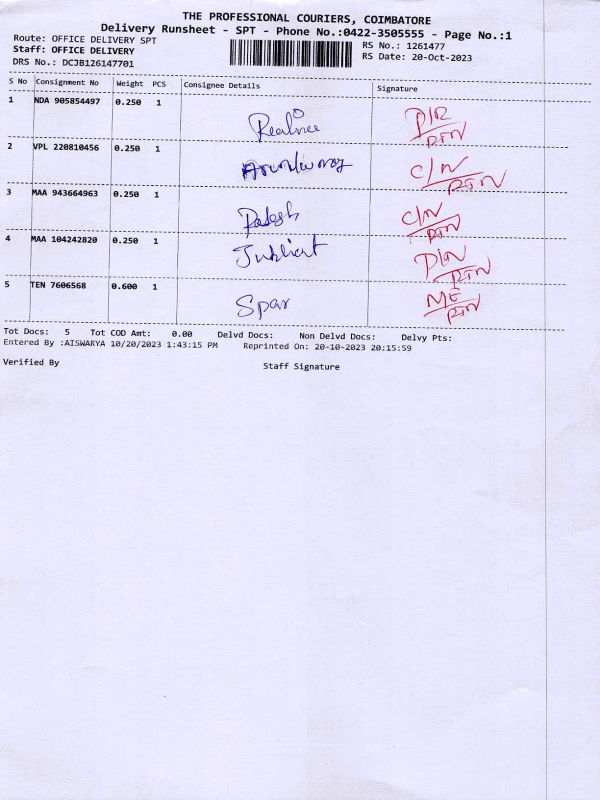 THE PROFESSIONAL COURIERS, COIMBATORE
Delivery Runsheet - SPT - Phone No.:0422-3505555 - Page No.:1
Route: OFFICE DELIVERY SPT
RS No.: 1261477
Staff: OFFICE DELIVERY
RS Date: 20-Oct-2023
DRS No.: DCJB126147701
S No Consignment No Weight PCS Consignee Details Signature
1 NDA 905854497 0.250 1
RTN
2 VPL 220810456 0.250 1
C/N
RTN
3 MAA 943664963 0.250 1
C/N
RTN
4 MAA 104242820 0.250 1
RTN
5 TEN 7606568 0.600 1
Spar
RTN
Tot Docs: 5 Tot COD Amt: 0.00 Delvd Docs: Non Delvd Docs: Delvy Pts:
Entered By :AISWARYA 10/20/2023 1:43:15 PM Reprinted On: 20-10-2023 20:15:59
Verified By Staff Signature